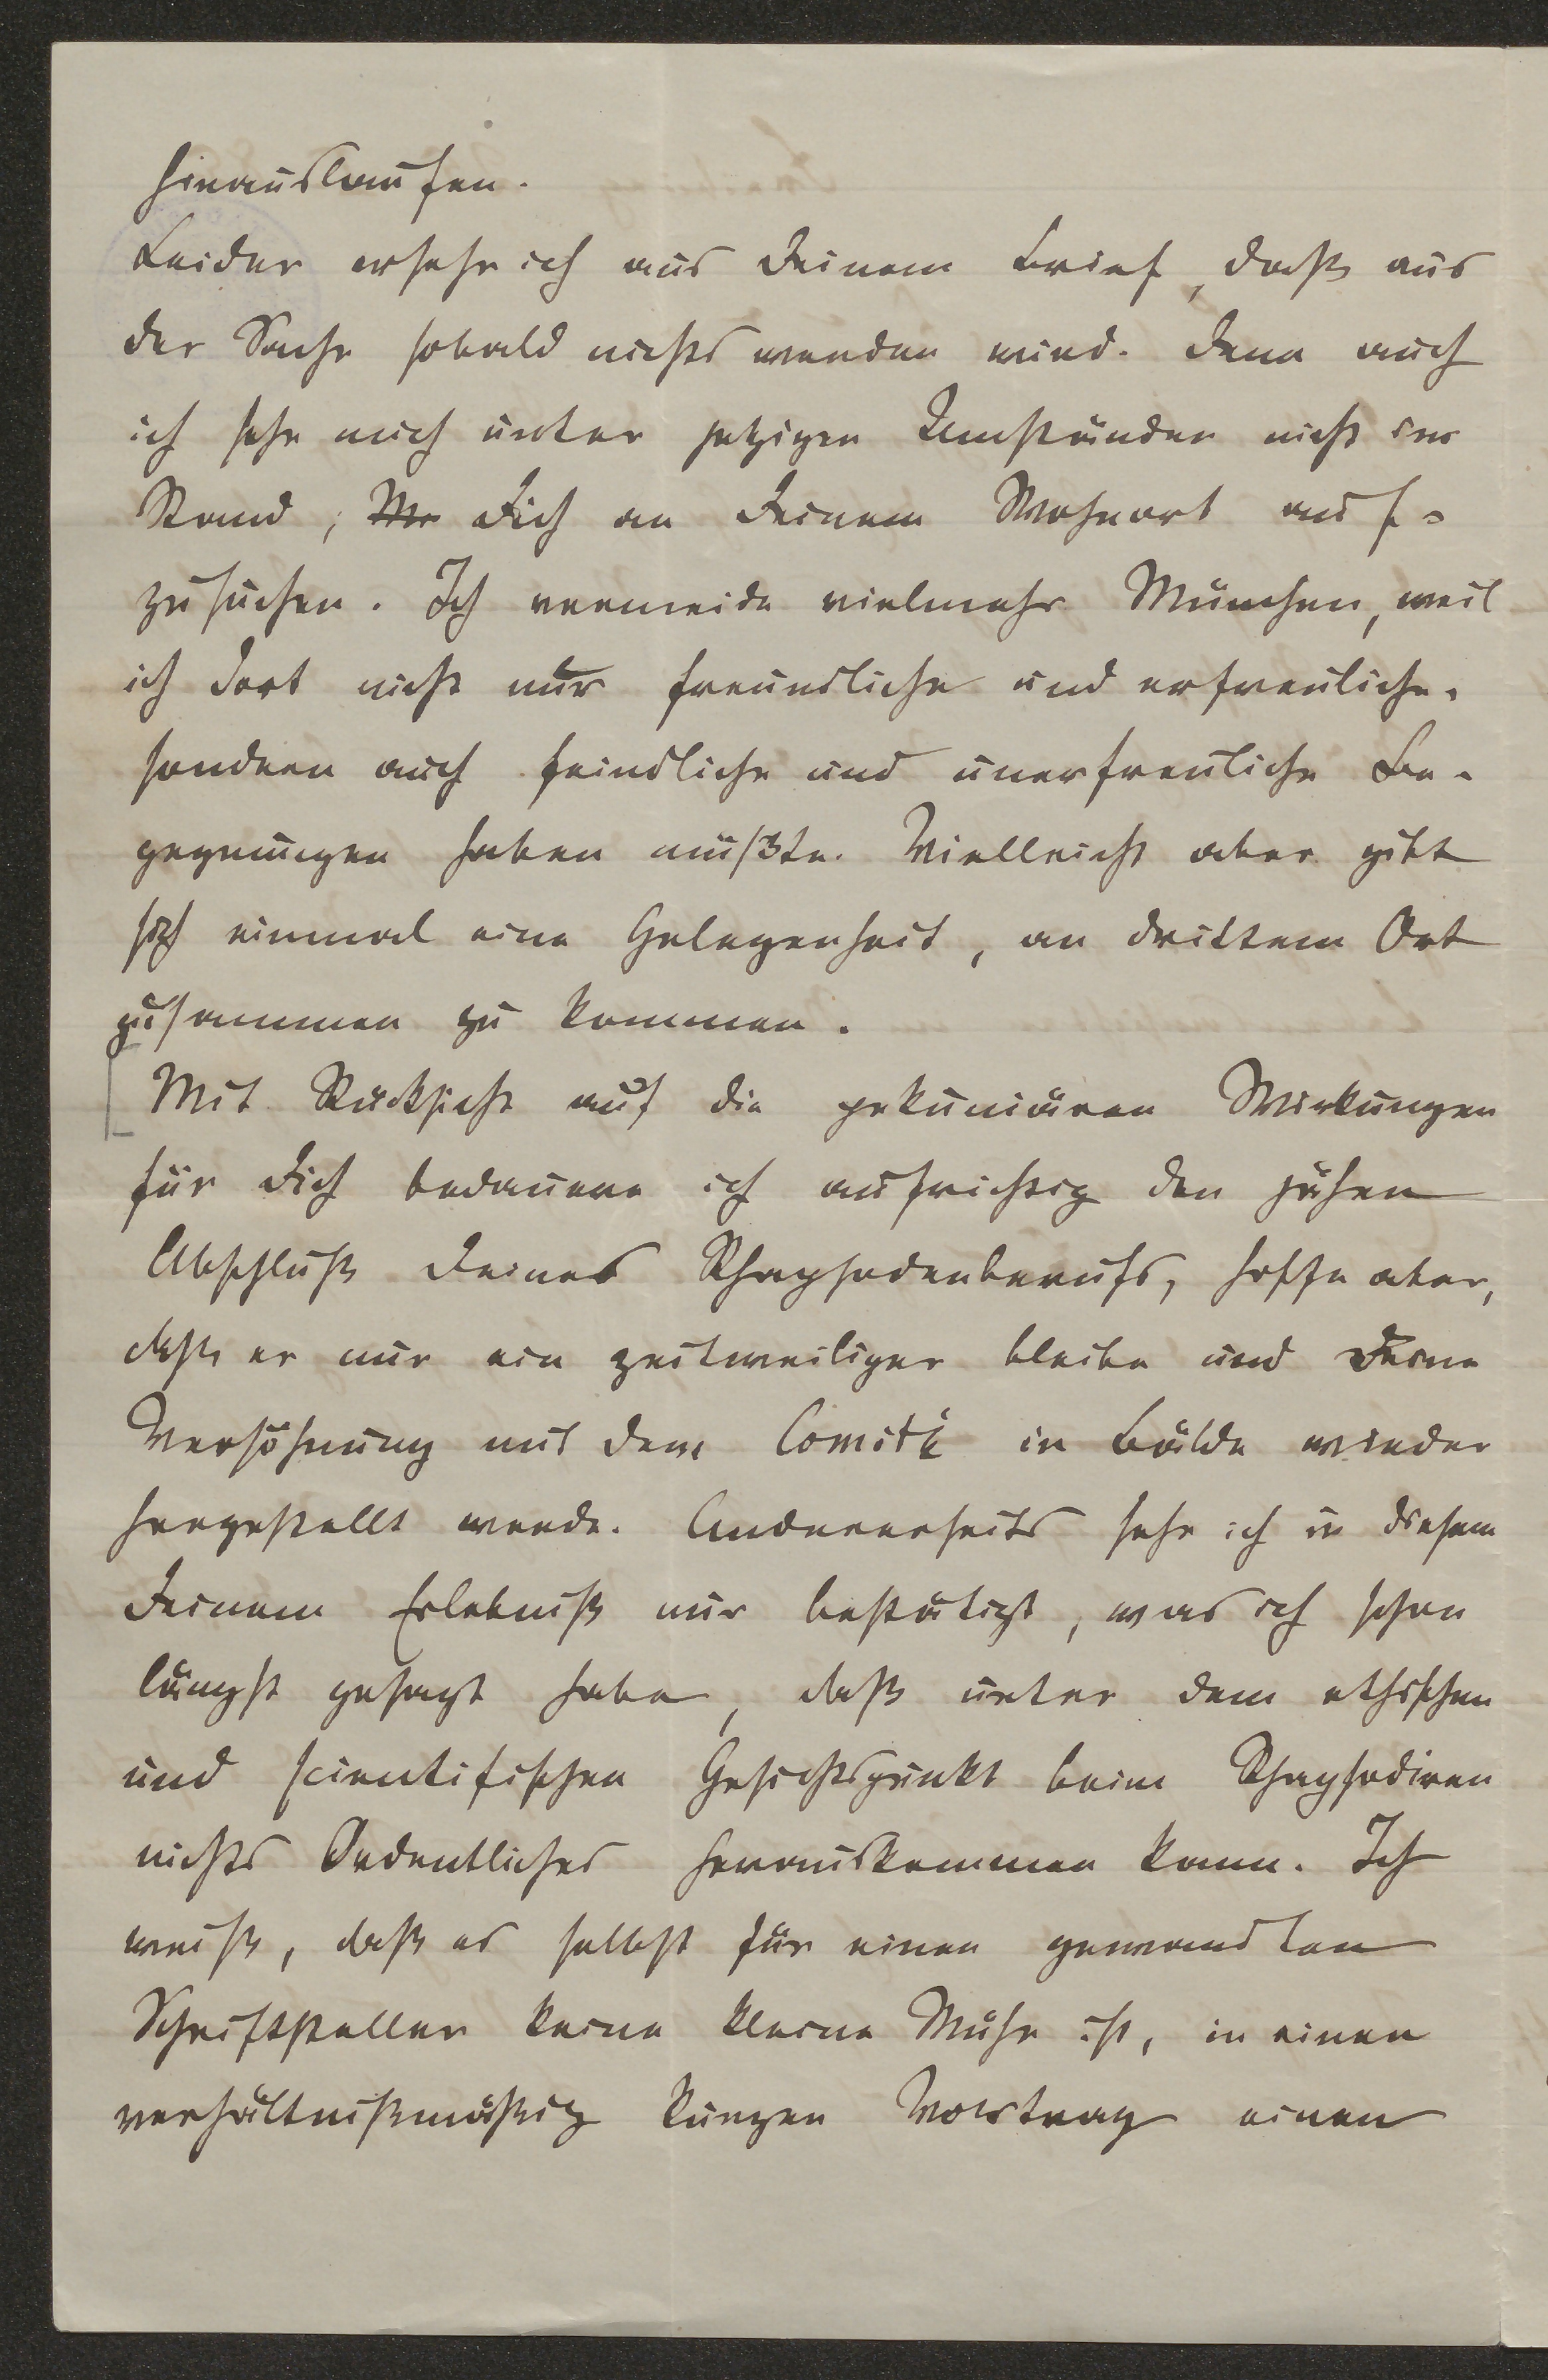 hinauslaufen.
Leider ersehe ich aus Deinem Brief, daß aus
der Sache sobald nichts werden wird. Denn auch
ich sehe mich unter jetzigen Umständen nicht im
Stand, Dich an Deinem Wohnort auf-
zusuchen. Ich vermeide vielmehr München, weil
ich dort nicht nur freundliche und erfreuliche,
sondern auch feindliche und unerfreuliche Be-
gegnungen haben müßte. Vielleicht aber gibt
sich einmal eine Gelegenheit, an drittem Ort
zusammen zu kommen.
Mit Rücksicht auf die pekuniären Wirkungen
für Dich bedauere ich aufrichtig den jähen
Abschluß Deines Rhapsodenberufs, hoffe aber,
daß er nur ein zeitweiliger bleibe und Deine
Versöhnung mit dem Comité in Bälde wieder
hergestellt werde. Andererseits sehe ich in diesem
Deinem Erlebniß nur bestätigt, was ich schon
längst gesagt habe, daß unter dem ethischen
und scientifischen Gesichtspunkt beim Rhapsodiren
nichts Ordentliches herauskommen kann. Ich
weiß, daß es selbst für einen gewandten
Schriftsteller keine kleine Mühe ist, in einen
verhältnißmäßig kurzen Vortrag einen